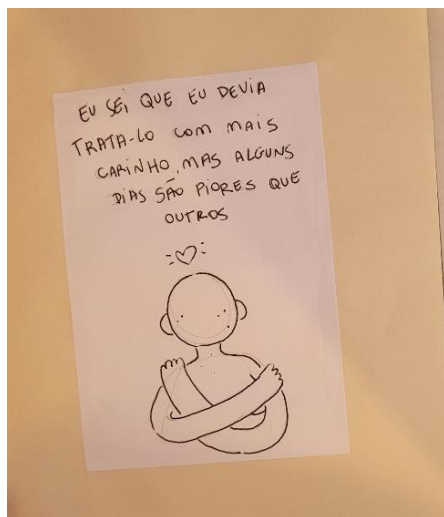 EU SEI QUE EU DEVIA
TRATA-LO COM MAIS
CARINHO, MAS ALGUNS
DIAS SÃO PIORES QUE
OUTROS